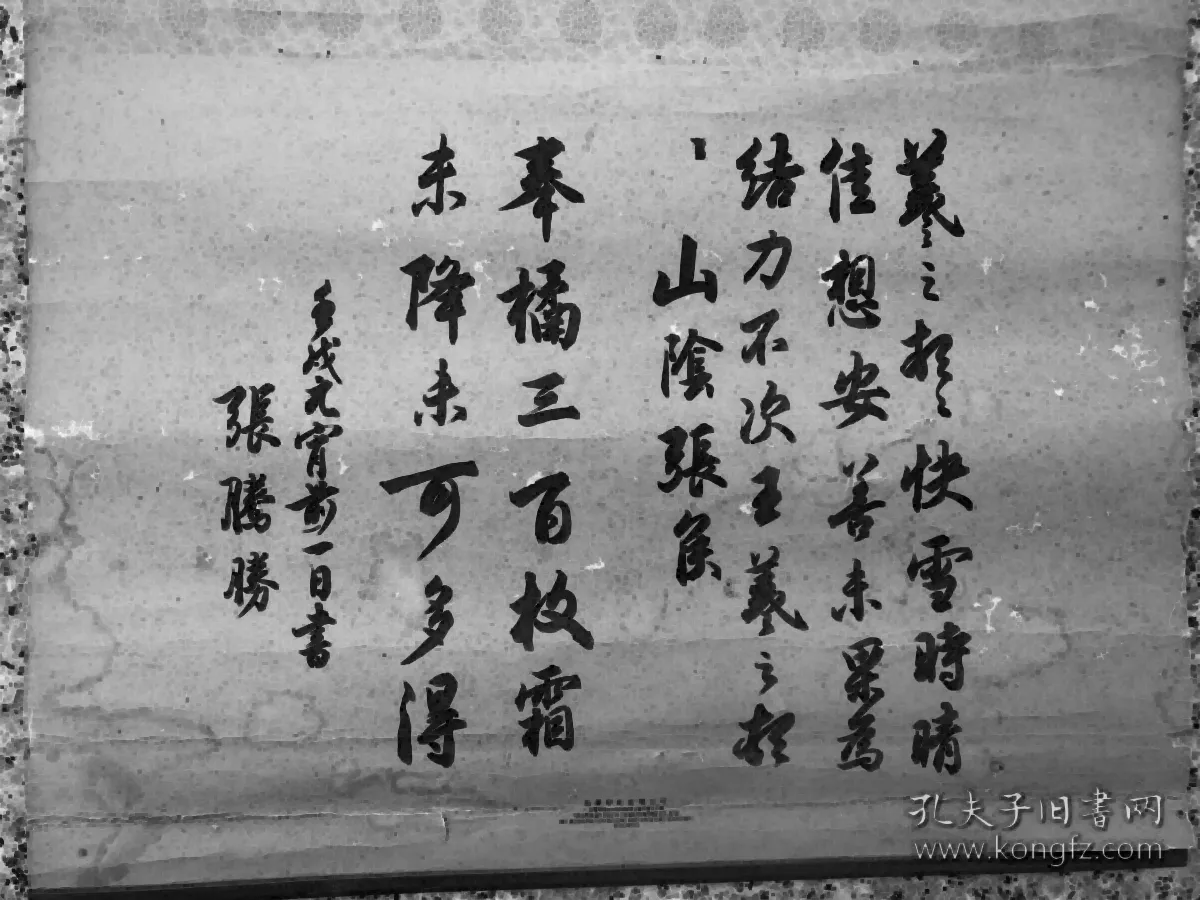 羲之頓首快雪時晴
佳想安善未果為
結力不次王羲之頓
首
山陰張侯
奉橘三百枚霜
未降未可多得
壬戌元宵前一日書
張騰勝
孔夫子旧书网
www.kongfz.com